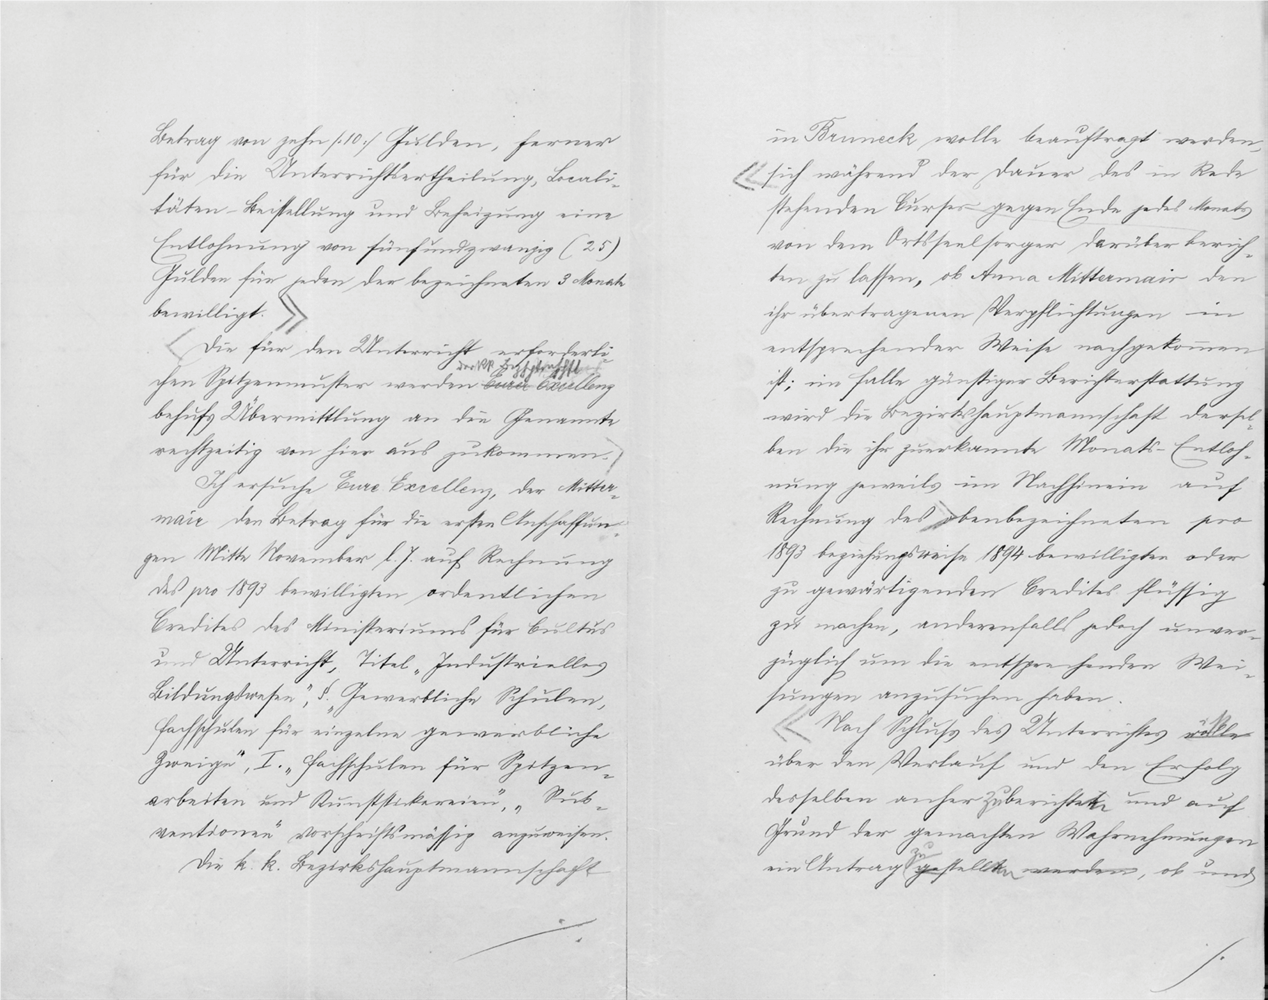 Betrag von zehn /:10:/ Gulden, ferner
für die Unterrichtsertheilung, Locali-
täten-Beistellung und Beheizung eine
Entlohnung von fünfundzwanzig (25)
Gulden für jeden der bezeichneten 3 Monate
bewilligt.
Die für den Unterricht erforderli
chen Spitzenmuster werden Eurer Excellenz
behufs Übermittlung an die Genannte
rechtzeitig von hier aus zukommen.
Ich ersuche Eure Excellenz, der Mitter-
mair den Betrag für die ersten Anschaffun-
gen Mitte November l. J. auf Rechnung
des pro 1893 bewilligten ordentlichen
Credites des Ministeriums für Cultus
und Unterricht, Titel „Industrielles
Bildungswesen", § „Gewerbliche Schulen,
Fachschulen für einzelne gewerbliche
Zweige", I. „Fachschulen für Spitzen-
arbeiten und Kunststickereien", „Sub-
ventionen" vorschriftsmässig anzuweisen.
Die k. k. Bezirkshauptmannschaft
in Bruneck wolle beauftragt werden,
sich während der Dauer des in Rede
stehenden Curses gegen Ende jedes Monats
von dem Ortsseelsorger darüber berich-
ten zu lassen, ob Anna Mittermair den
ihr übertragenen Verpflichtungen in
entsprechender Weise nachgekommen
ist; im Falle günstiger Berichterstattung
wird die Bezirkshauptmannschaft dersel-
ben die ihr zuerkannte Monats-Entloh-
nung jeweils im Nachhinein auf
Rechnung des obenbezeichneten pro
1893 beziehungsweise 1894 bewilligten oder
zu gewärtigenden Credites flüssig
zu machen, anderenfalls jedoch unver-
züglich um die entsprechenden Wei-
sungen anzusuchen haben.
Nach Schluss des Unterrichtes wolle
über den Verlauf und den Erfolg
desselben anher zu berichten und auf
Grund der gemachten Wahrnehmungen
ein Antrag zu gestellt werden, ob und